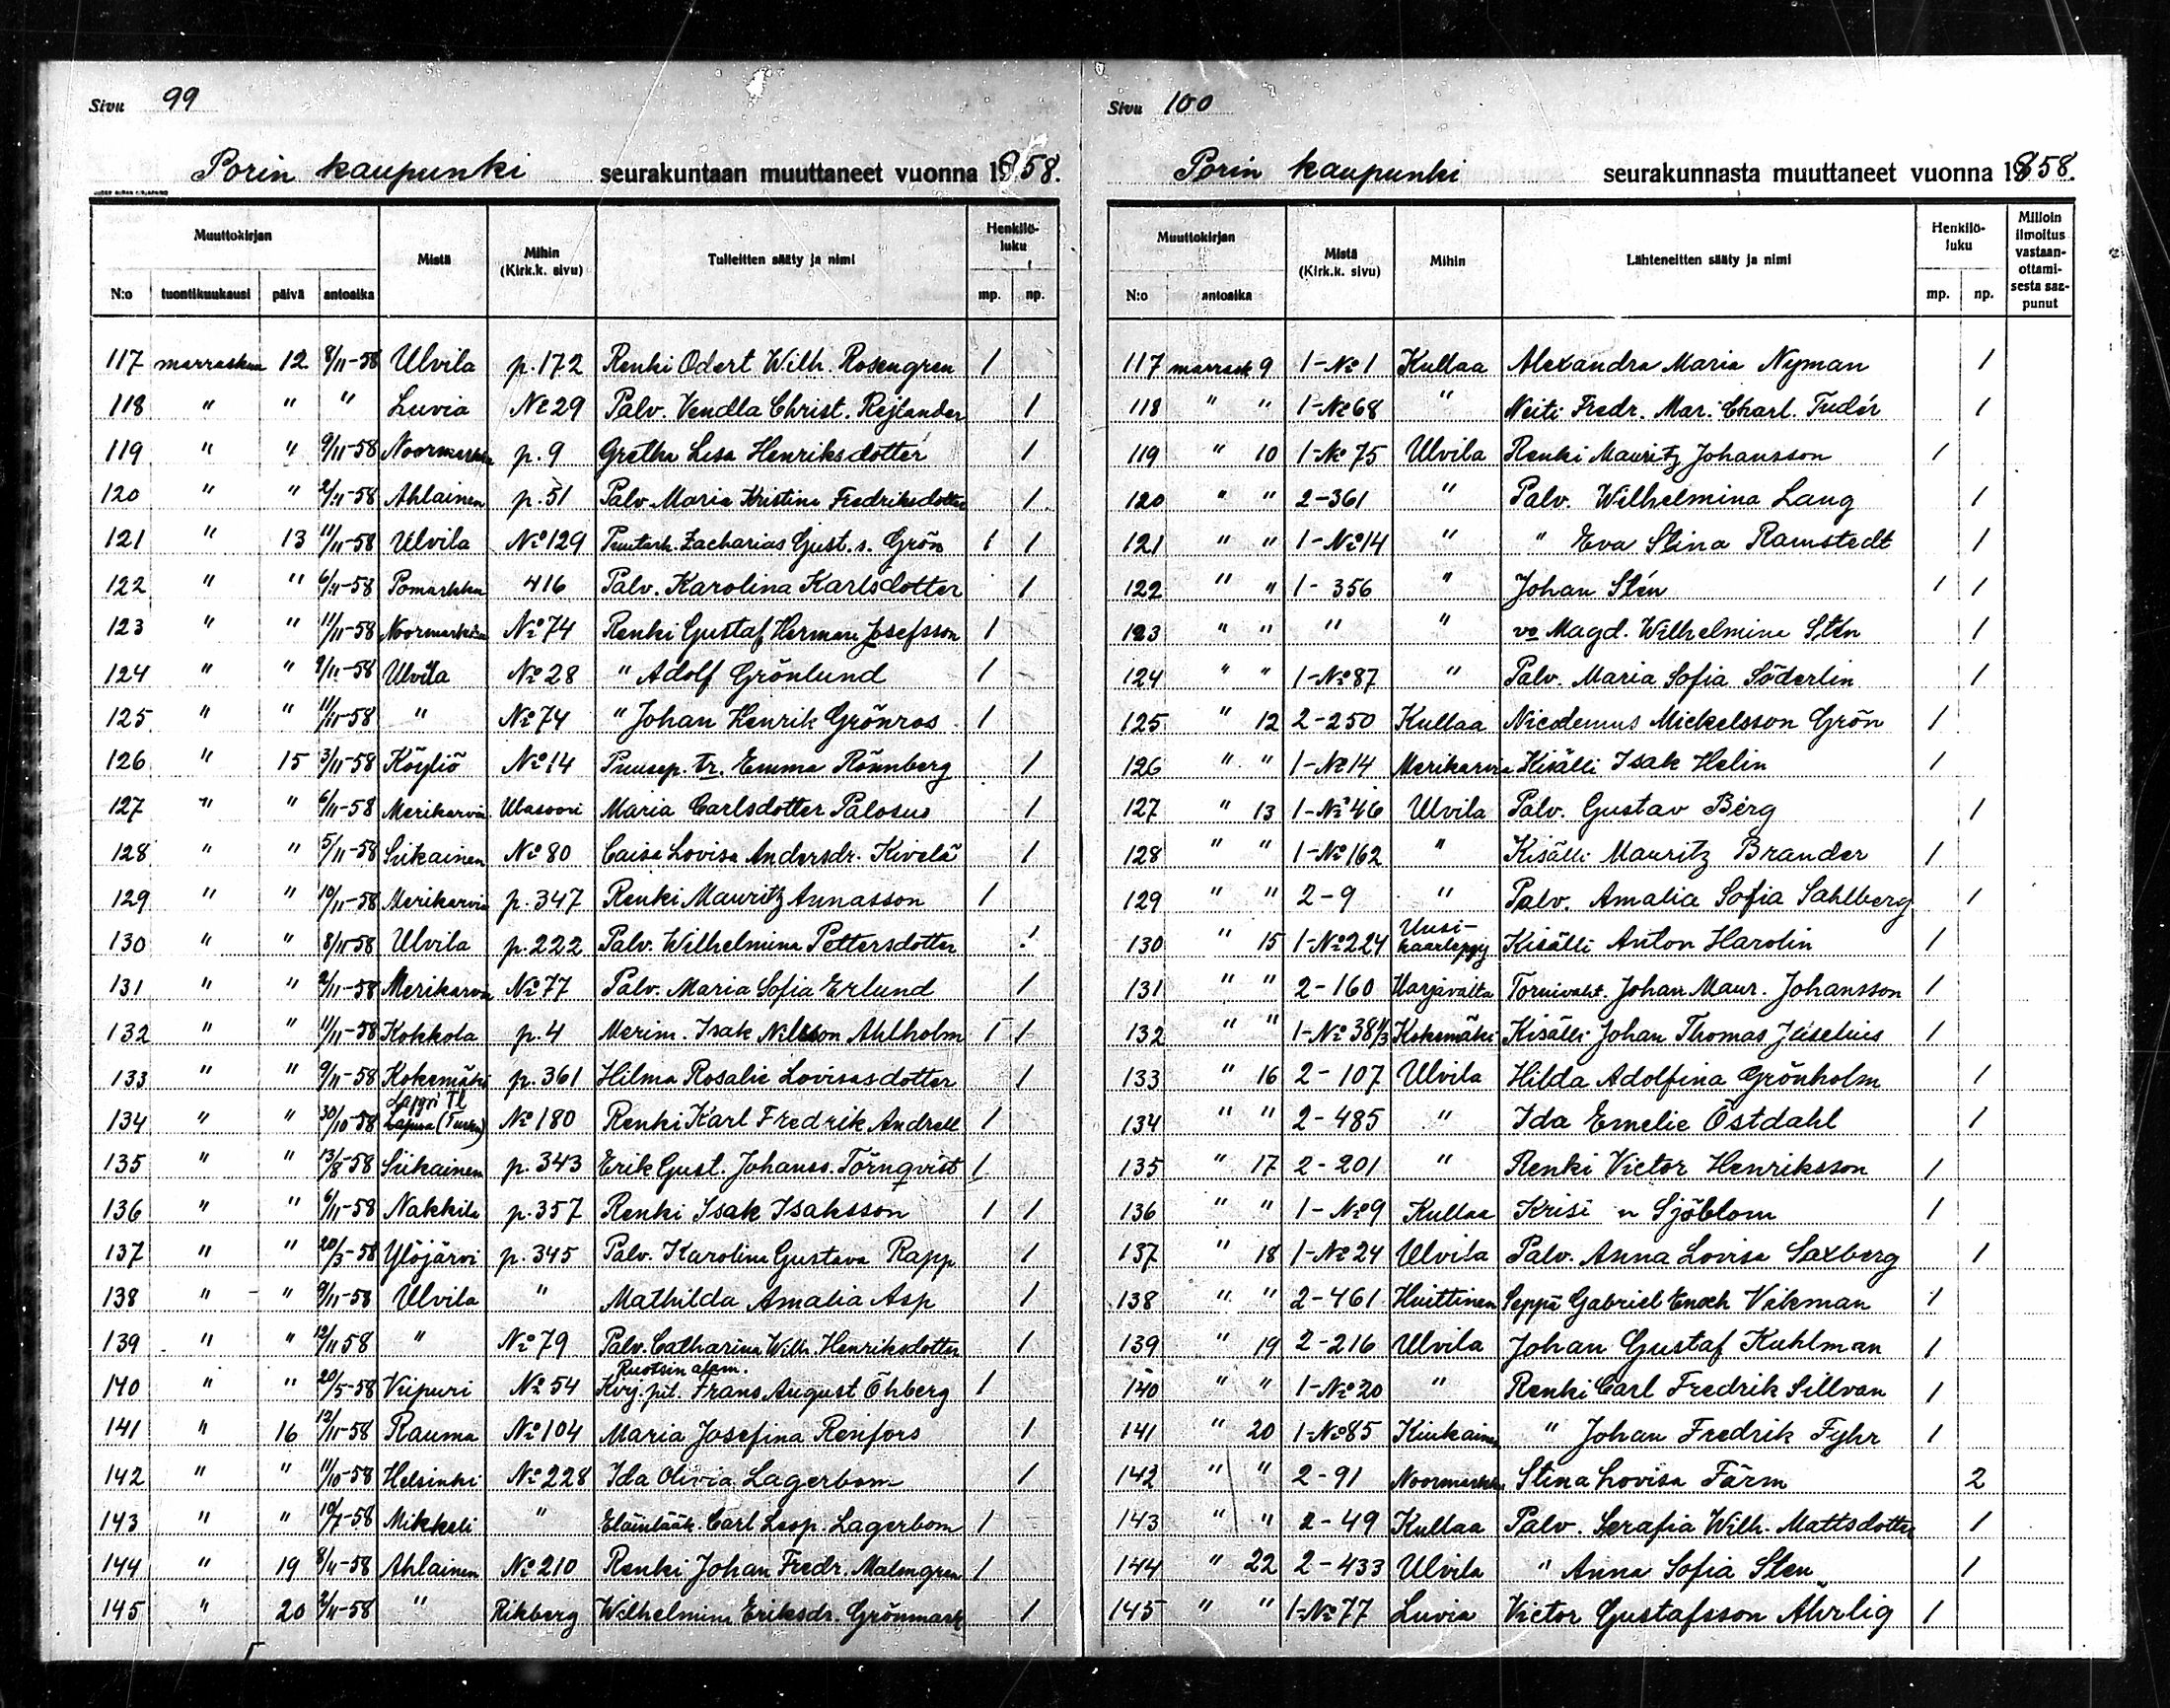 Sivu 99
Porin kaupunki seurakuntaan muuttaneet vuonna 1858.
Muuttokirjan Mistä Mihin (Kirk.k. sivu) Tulleitten sääty ja nimi Henkilö-luku
N:o tuontikuukausi päivä antoaika mp. np.
117 marraskuu 12 8/11-58 Ulvila p.172 Renki Odert Wilh. Rosengren 1
118 " " " Luvia № 29 Palv. Vendla Christ. Rejlander 1
119 " " 9/11-58 Noormarkku p.9 Gretha Lisa Henriksdotter 1
120 " " 2/11-58 Ahlainen p.51 Palv. Maria Kristina Fredriksdotter 1
121 " 13 11/11-58 Ulvila № 129 Puutarh. Zacharias Gust.s. Grön 1 1
122 " " 6/11-58 Pomarkku 416 Palv. Karolina Karlsdotter 1
123 " " 11/11-58 Noormarkku № 74 Renki Gustaf Herman Josefsson 1
124 " " 9/11-58 Ulvila № 28 " Adolf Grönlund 1
125 " " 11/11-58 " № 74 " Johan Henrik Grönros 1
126 " 15 3/11-58 Köyliö № 14 Puusep. tr. Emma Rönnberg 1
127 " " 6/11-58 Merikarvia Uusoori Maria Carlsdotter Palosus 1
128 " " 5/11-58 Siikainen № 80 Caisa Lovisa Andersdr. Kivelä 1
129 " " 10/11-58 Merikarvia p.347 Renki Mauritz Annasson 1
130 " " 8/11-58 Ulvila p.222 Palv. Wilhelmina Pettersdotter 1
131 " " 2/11-58 Merikarvia № 77 Palv. Maria Sofia Erlund 1
132 " " 11/11-58 Kokkola p.4 Merim. Isak Nilsson Ahlholm 1 1
133 " " 9/11-58 Kokemäki p.361 Hilma Rosalie Lovisasdotter 1
Lappi Tl
134 " " 30/10-58 Lapua (Turku) № 180 Renki Karl Fredrik Andrell 1
135 " " 13/8-58 Siikainen p.343 Erik Gust. Johanss. Törnqvist 1
136 " " 6/11-58 Nakkila p.357 Renki Isak Isaksson 1 1
137 " " 20/3-58 Ylöjärvi p.345 Palv. Karolina Gustava Rapp 1
138 " " 9/11-58 Ulvila " Mathilda Amalia Asp 1
139 " " 12/11 58 " № 79 Palv. Catharina Wilh. Henriksdotter 1
Ruotsin alam.
140 " " 20/5-58 Viipuri № 54 Kvg. pit. Frans August Öhberg 1
141 " 16 12/11-58 Rauma № 104 Maria Josefina Renfors 1
142 " " 11/10-58 Helsinki № 228 Ida Olivia Lagerbom 1
143 " " 10/7-58 Mikkeli " Eläinlääk. Carl Leop. Lagerbom 1
144 " 19 8/11-58 Ahlainen № 210 Renki Johan Fredr. Malmgren 1
145 " 20 2/11-58 " Rikberg Wilhelmina Eriksdr. Grönmark 1
Sivu 100
Porin kaupunki seurakunnasta muuttaneet vuonna 1858.
Muuttokirjan Mistä (Kirk.k. sivu) Mihin Lähteneitten sääty ja nimi Henkilö-luku Milloin ilmoitus vastaan-ottami-sesta saa-punut
N:o antoaika mp. np.
117 marrask 9 1-№ 1 Kullaa Alexandra Maria Nyman 1
118 " " 1-№ 68 " Neiti Fredr. Mar. Charl. Tudér 1
119 " 10 1-№ 75 Ulvila Renki Mauritz Johansson 1
120 " " 2-361 " Palv. Wilhelmina Lang 1
121 " " 1-№ 14 " " Eva Stina Ramstedt 1
122 " " 1-356 " Johan Stén 1 1
123 " " " " vo Magd. Wilhelmina Stén 1
124 " " 1-№ 87 " Palv. Maria Sofia Söderlin 1
125 " 12 2-250 Kullaa Nicodemus Mickelsson Grön 1
126 " " 1-№ 14 Merikarvia Kisälli Isak Helin 1
127 " 13 1-№ 46 Ulvila Palv. Gustav Berg 1
128 " " 1-№ 162 " Kisälli Mauritz Brander 1
129 " " 2-9 " Palv. Amalia Sofia Sahlberg 1
130 " 15 1-№ 224 Uusi-kaarlepyy Kisälli Anton Harolin 1
131 " " 2-160 Harjavalta Tornivaht. Johan Maur. Johansson 1
132 " " 1-№ 38 1/3 Kokemäki Kisälli Johan Thomas Juselius 1
133 " 16 2-107 Ulvila Hilda Adolfina Grönholm 1
134 " " 2-485 " Ida Emelie Östdahl 1
135 " 17 2-201 " Renki Victor Henriksson 1
136 " " 1-№ 9 Kullaa Krisi n Sjöblom 1
137 " 18 1-№ 24 Ulvila Palv. Anna Lovisa Saxberg 1
138 " " 2-461 Huittinen Seppä Gabriel Enoch Vikman 1
139 " 19 2-216 Ulvila Johan Gustaf Kuhlman 1
140 " " 1-№ 20 " Renki Carl Fredrik Sillvan 1
141 " 20 1-№ 85 Kiukainen " Johan Fredrik Fyhr 1
142 " " 2-91 Noormarkku Stina Lovisa Färm 2
143 " " 2-49 Kullaa Palv. Serafia Wilh. Mattsdotter 1
144 " 22 2-433 Ulvila " Anna Sofia Sten 1
145 " " 1-№ 77 Luvia Victor Gustafsson Ährlig 1